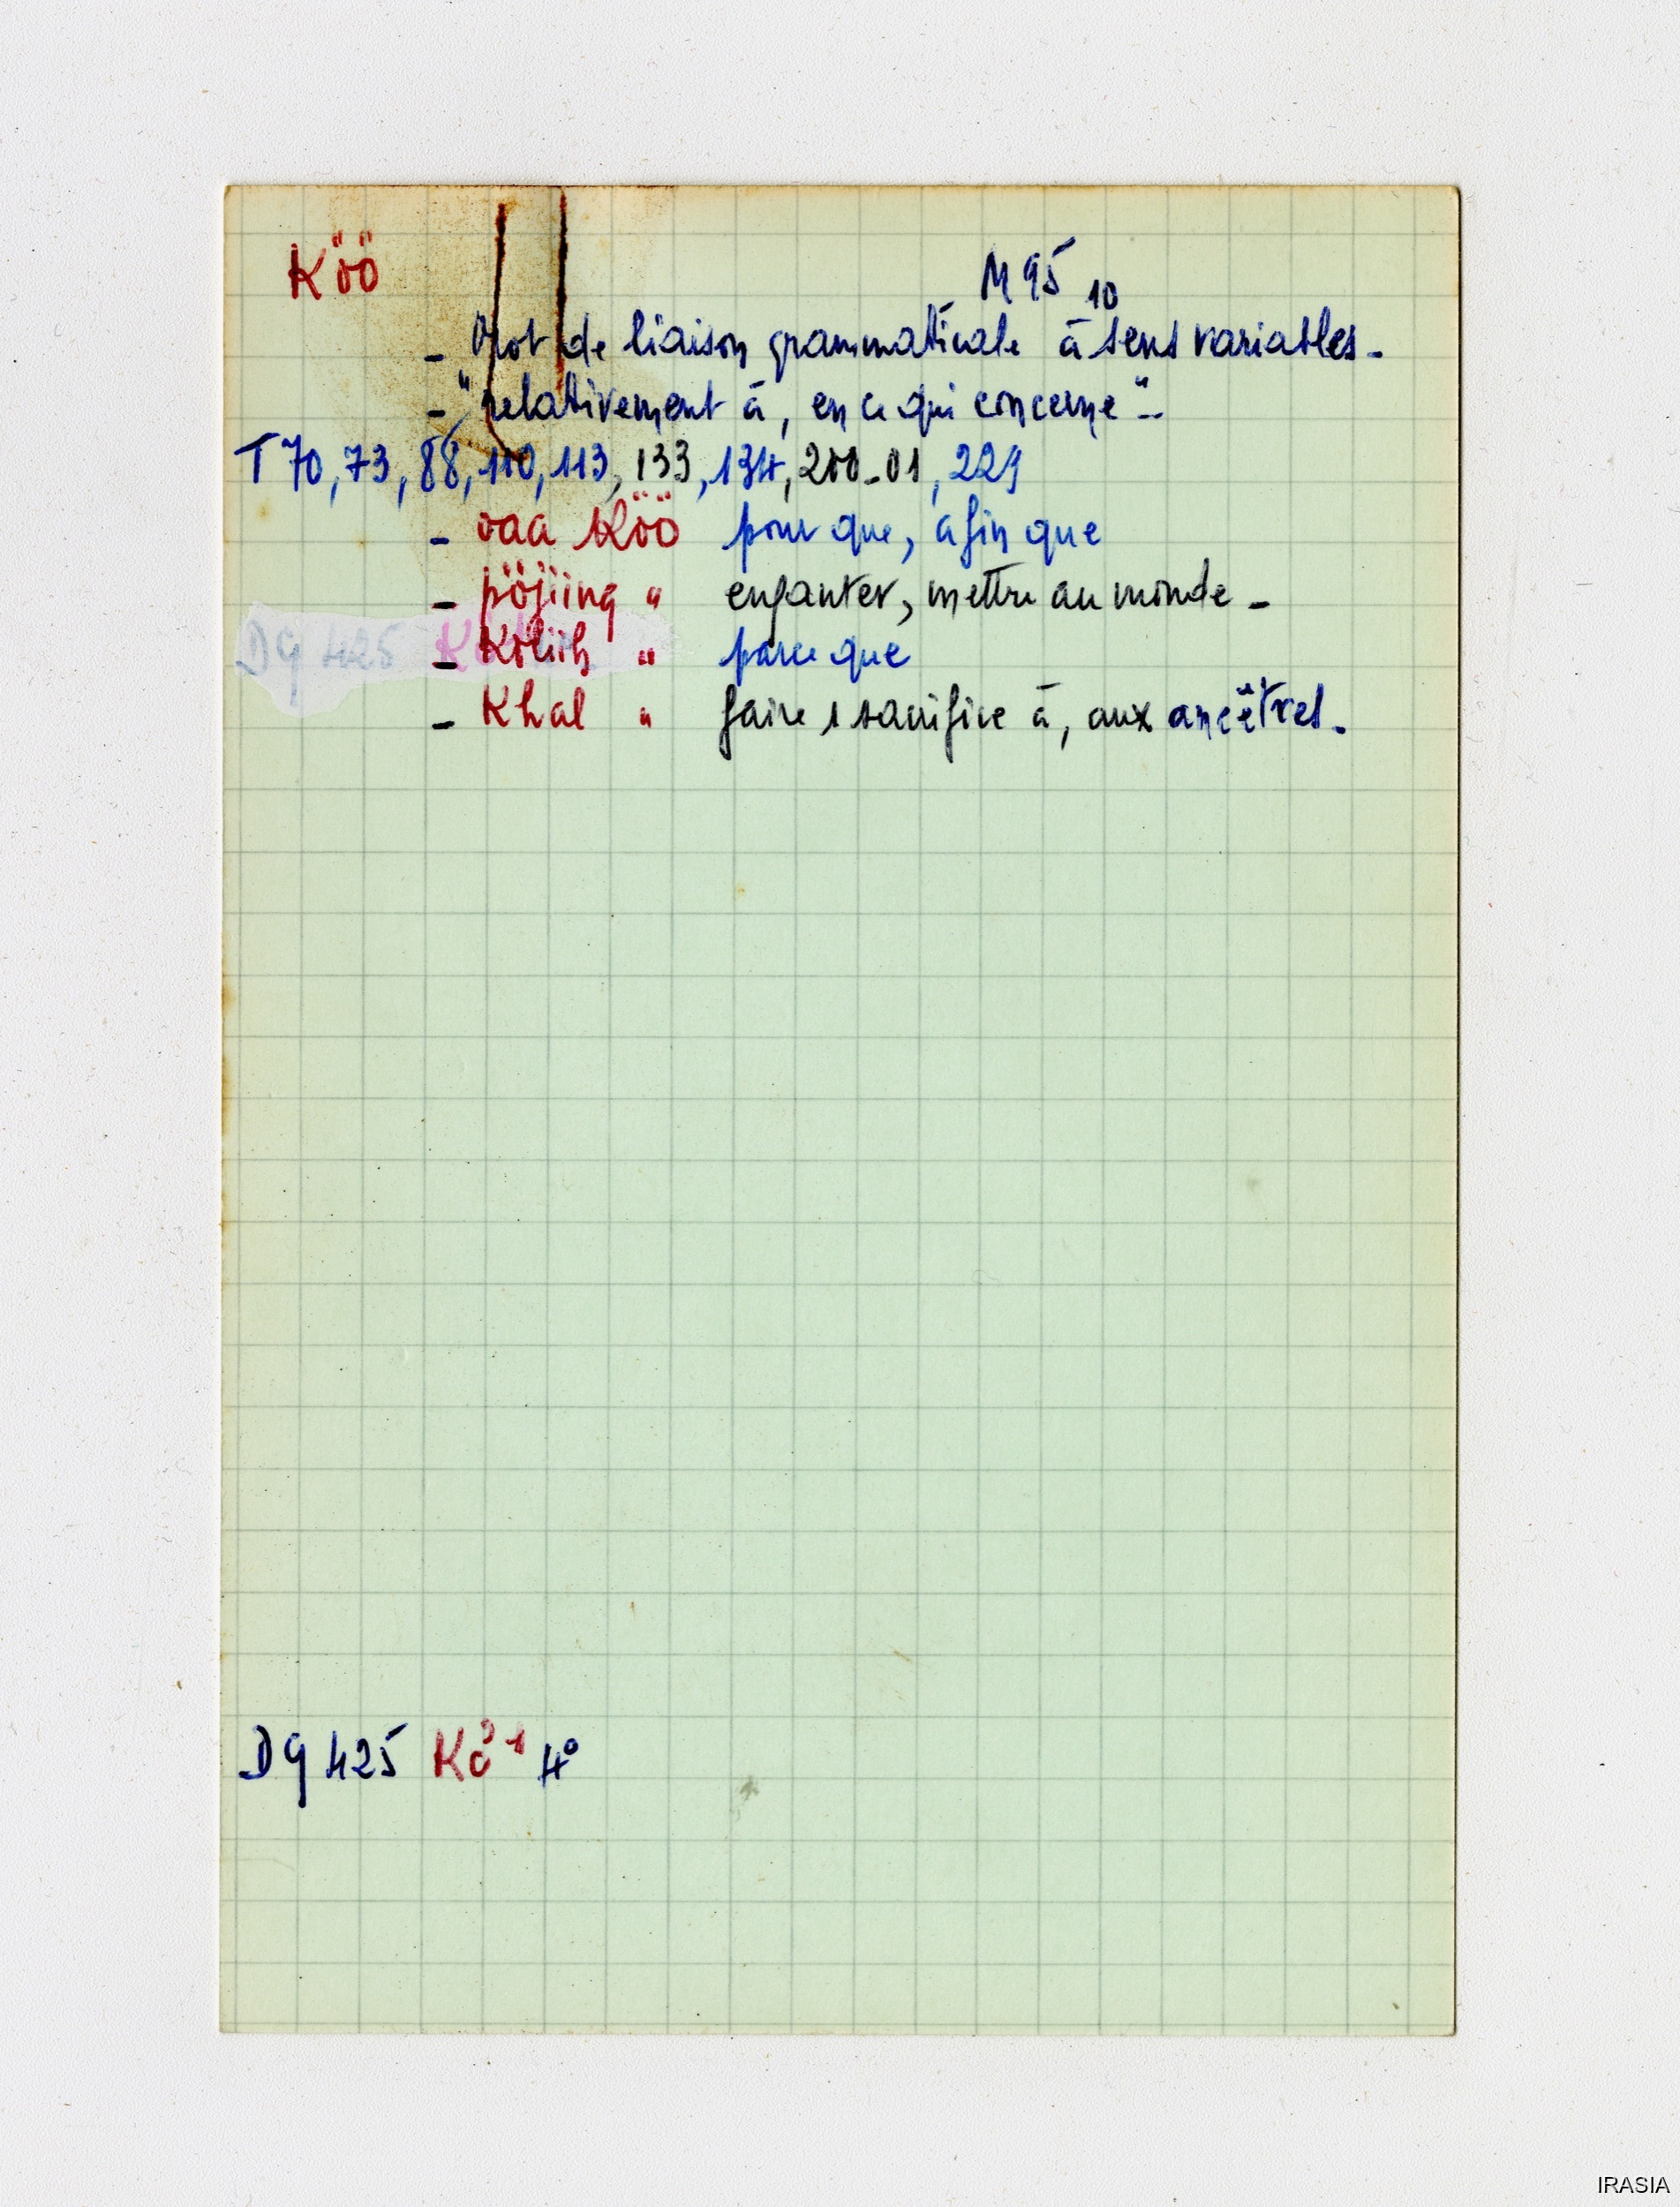 Köö
M 95 10
- Mot de liaison grammaticale à sens variables -
- "relativement à, en ce qui concerne" -
T 70, 73, 88, 110, 113, 133, 134, 200-01, 229
- vaa Köö pour que, afin que
- pöjiing " enfanter, mettre au monde -
- Köliih " parce que
- Khal " faire 1 sacrifice à, aux ancêtres -
DG 425
DG 425 4°
IRASIA